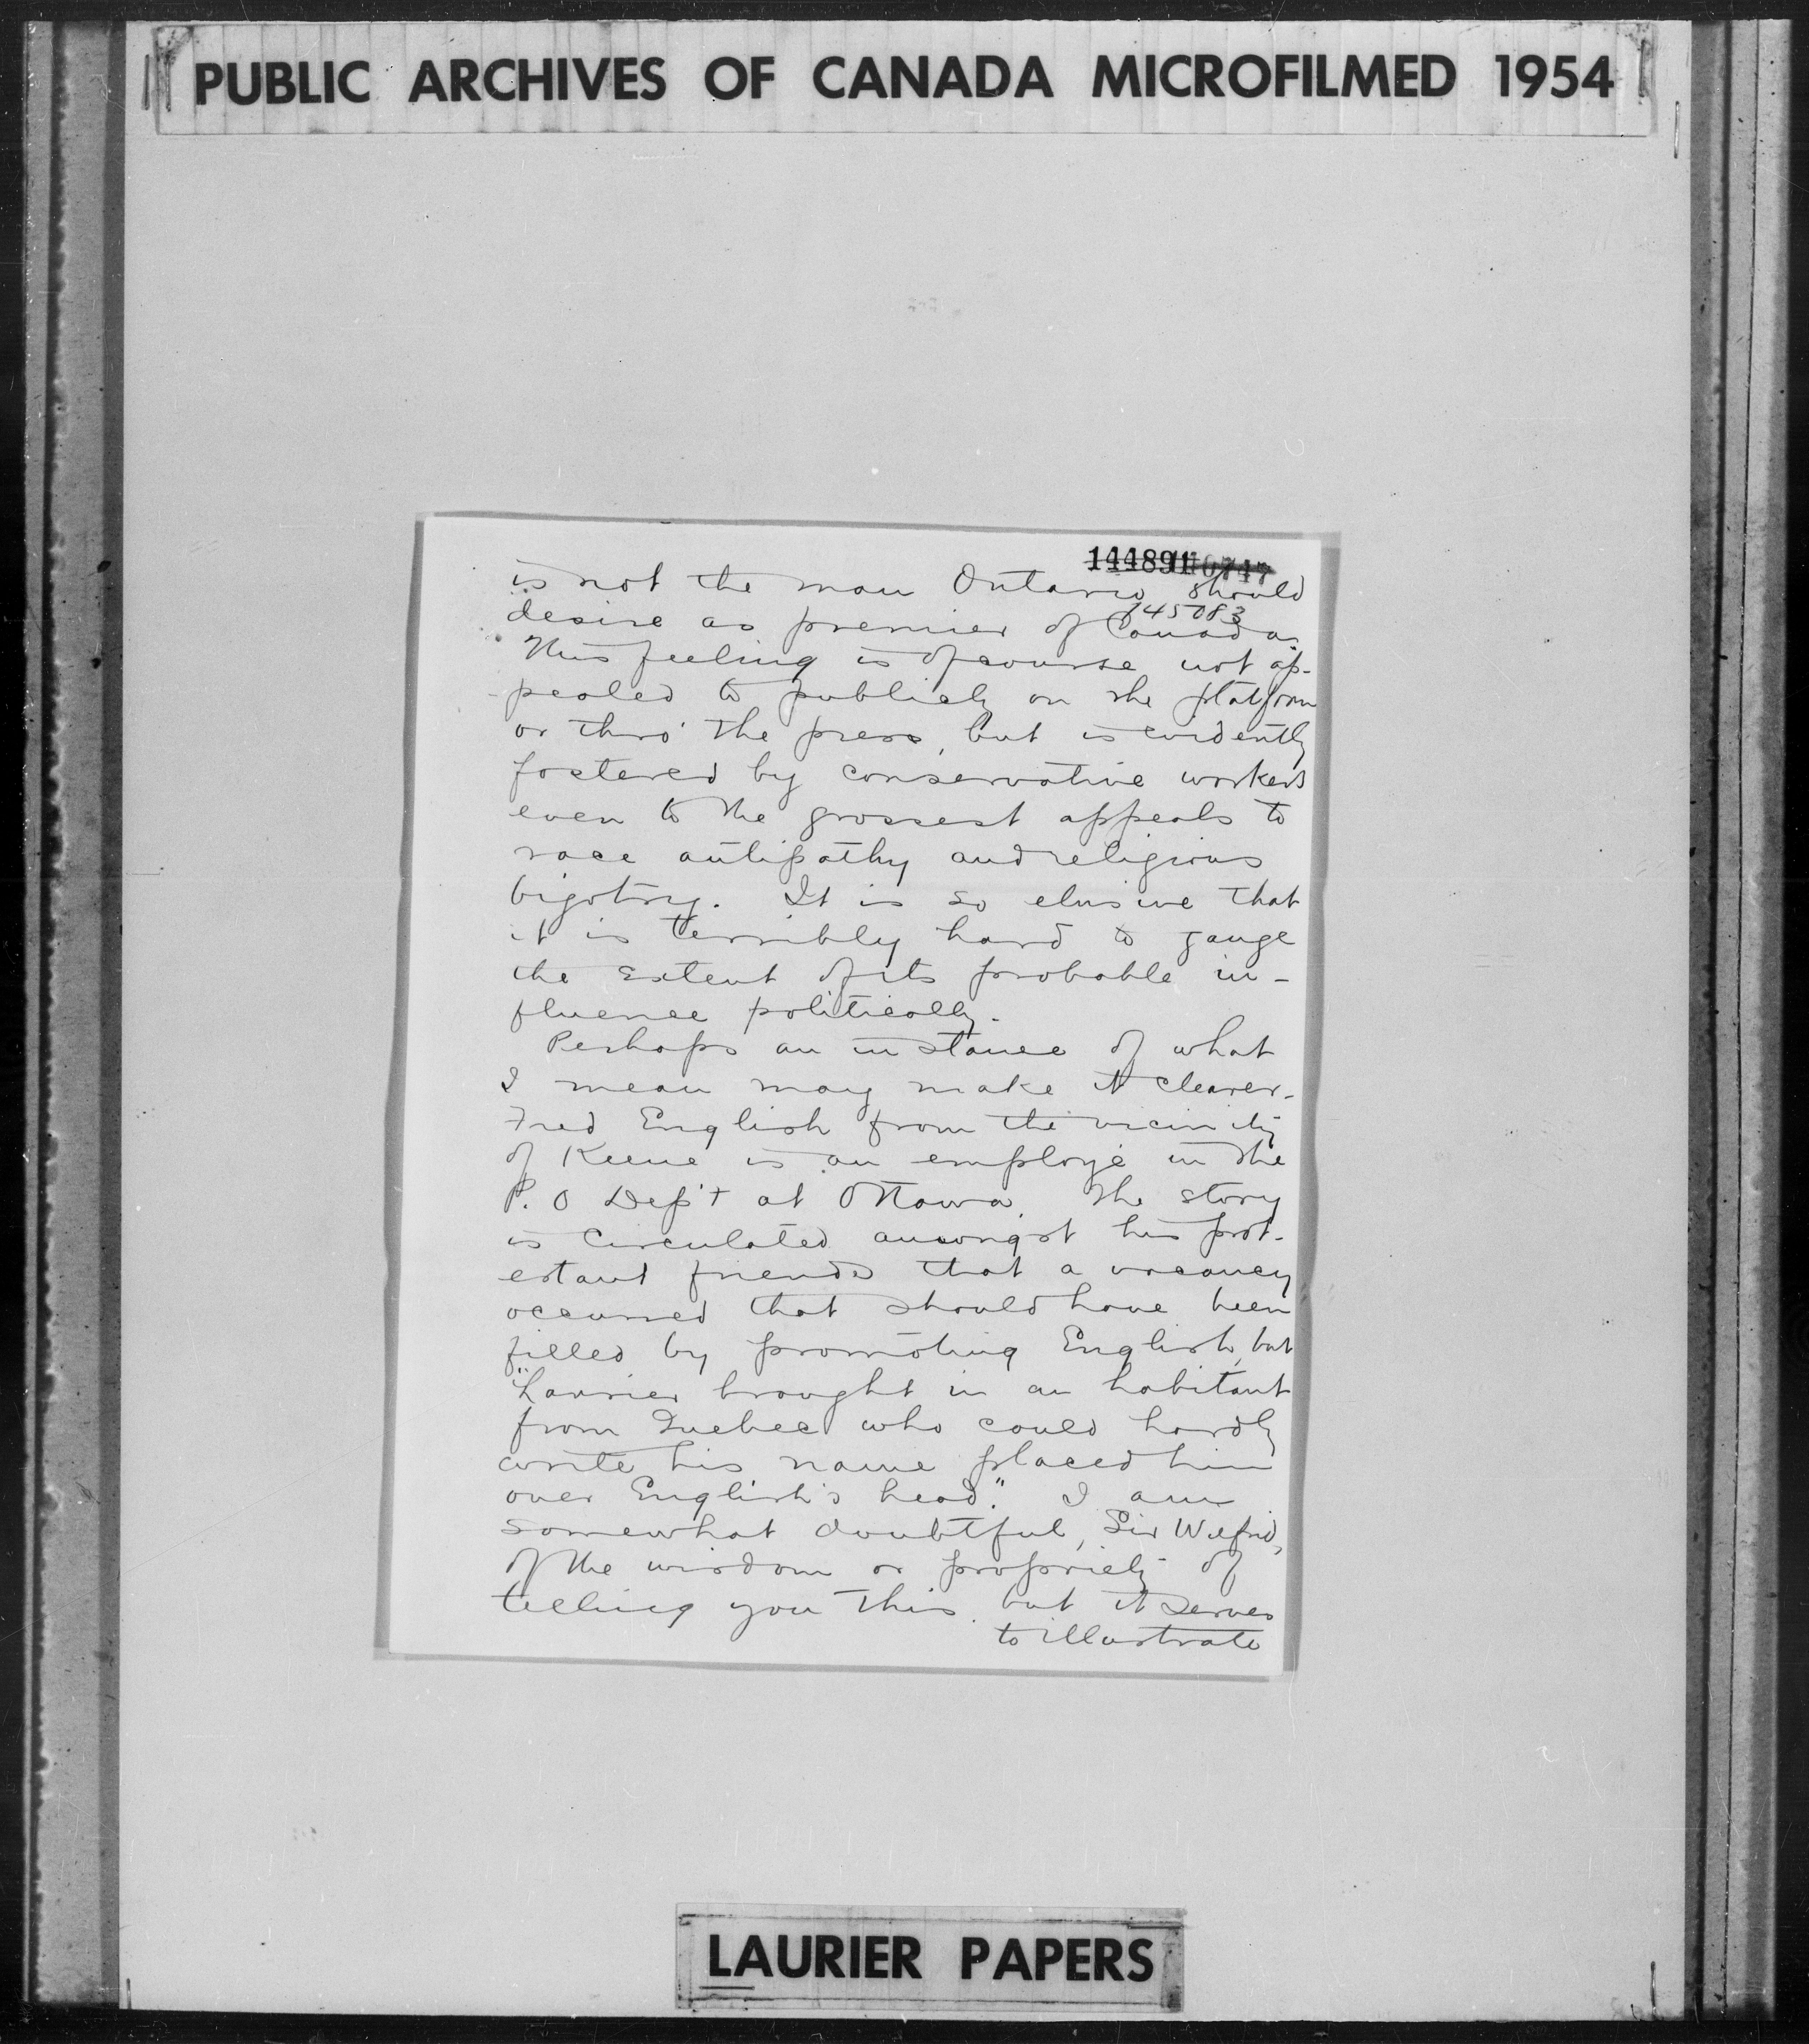 PUBLIC ARCHIVES OF CANADA MICROFILMED 1954
144891
is not the man Ontario should
145083
desire as premier of Canada.
This feeling is of course not ap-
pealed to publicly on the platform
or thro' the press, but is evidently
fostered by conservative workers
even to the grossest appeals to
race antipathy and religious
bigotry. It is so elusive that
it is terribly hard to gauge
the extent of its probable in-
fluence politically.
Perhaps an instance of what
I mean may make it clearer.
Fred English from the vicinity
of Keene is an employé in the
P. O Dep't at Ottawa. The story
is circulated amongst his prot-
estant friends that a vacancy
occurred that should have been
filled by promoting English, but
"Laurier brought in an habitant
from Quebec who could hardly
write his name placed him
over English's head." I am
somewhat doubtful, Sir Wilfrid,
of the wisdom or propriety of
telling you this, but it serves
to illustrate
LAURIER PAPERS